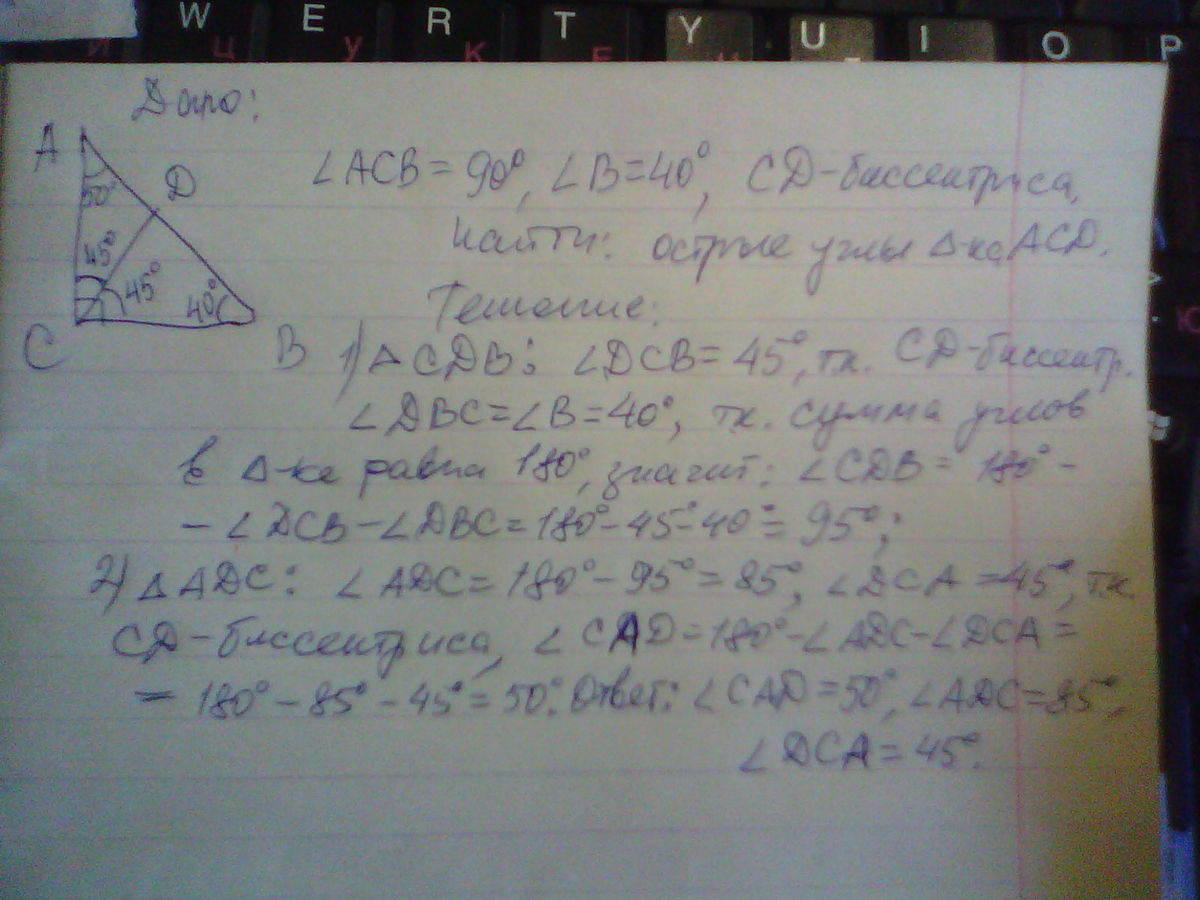 W E R T Y U I O P
Й Ц У К Е
Дано:
A
D
50°
45°
45°
40°
C
B
∠ACB = 90°, ∠B=40°, CD-биссектриса,
Найти: острые углы Δ-ка ACD.
Решение:
1) ΔCDB: ∠DCB = 45°, тк. CD-биссектр.
∠DBC=∠B=40°, тк. сумма углов
в Δ-ке равна 180°, значит: ∠CDB = 180° -
- ∠DCB - ∠DBC = 180° - 45° - 40° = 95°;
2) ΔADC: ∠ADC = 180° - 95° = 85°, ∠DCA = 45°, тк.
CD-биссектриса, ∠CAD = 180° - ∠ADC - ∠DCA =
= 180° - 85° - 45° = 50°. Ответ: ∠CAD = 50°, ∠ADC = 85°,
∠DCA = 45°.